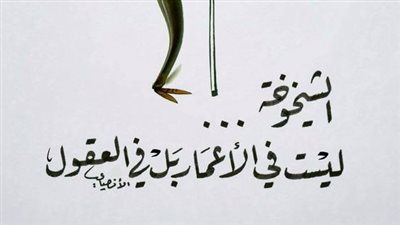 الشيخوخة
...
ليست في الأعمَار بَلْ في العقول
الأنصاري